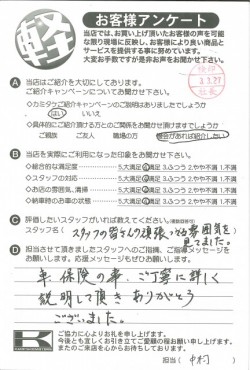 軽
お客様アンケート
当店では、お買い上げ頂いたお客様の声を可能
な限り現場に反映し、お客様により良い商品と
サービスを提供する事に努めています。
大変お手数ですが是非お声をお聞かせ下さい。
3.3.27
社長
A 当店はご紹介を大切にしております。
ご紹介キャンペーンについてお聞かせ下さい。
ご紹介キャンペーンのご説明はありましたでしょうか
はい いいえ
具体的にご紹介頂ける方とのご関係をお聞かせ頂けますでしょうか
ご親族 ご友人 職場の方 機会があれば紹介したい
B 当店を実際にご利用になった印象をお聞かせ下さい。
総合的な満足度 5.大満足 4.満足 3.ふつう 2.やや不満 1.不満
スタッフの対応 5.大満足 4.満足 3.ふつう 2.やや不満 1.不満
お店の雰囲気、清掃 5.大満足 4.満足 3.ふつう 2.やや不満 1.不満
納車時のお車の状態 5.大満足 4.満足 3.ふつう 2.やや不満 1.不満
C 評価したいスタッフがいれば教えてください。(複数回答可)
スタッフ名( スタッフの皆さんの頑張ってる雰囲気を
見てました。
D 担当させて頂きましたスタッフへのご指摘、ご指導メッセージを
お願いします。応援メッセージもぜひお願いします。
車、保険の事、ご丁寧に詳しく
説明して頂きありがとう
ございました。
K
ご協力に心よりお礼を申し上げます。
今後とも宜しくお引き立てご愛顧の程お願い申し上げます。
またのご来店を心からお待ちしております。
担当( 中村 )